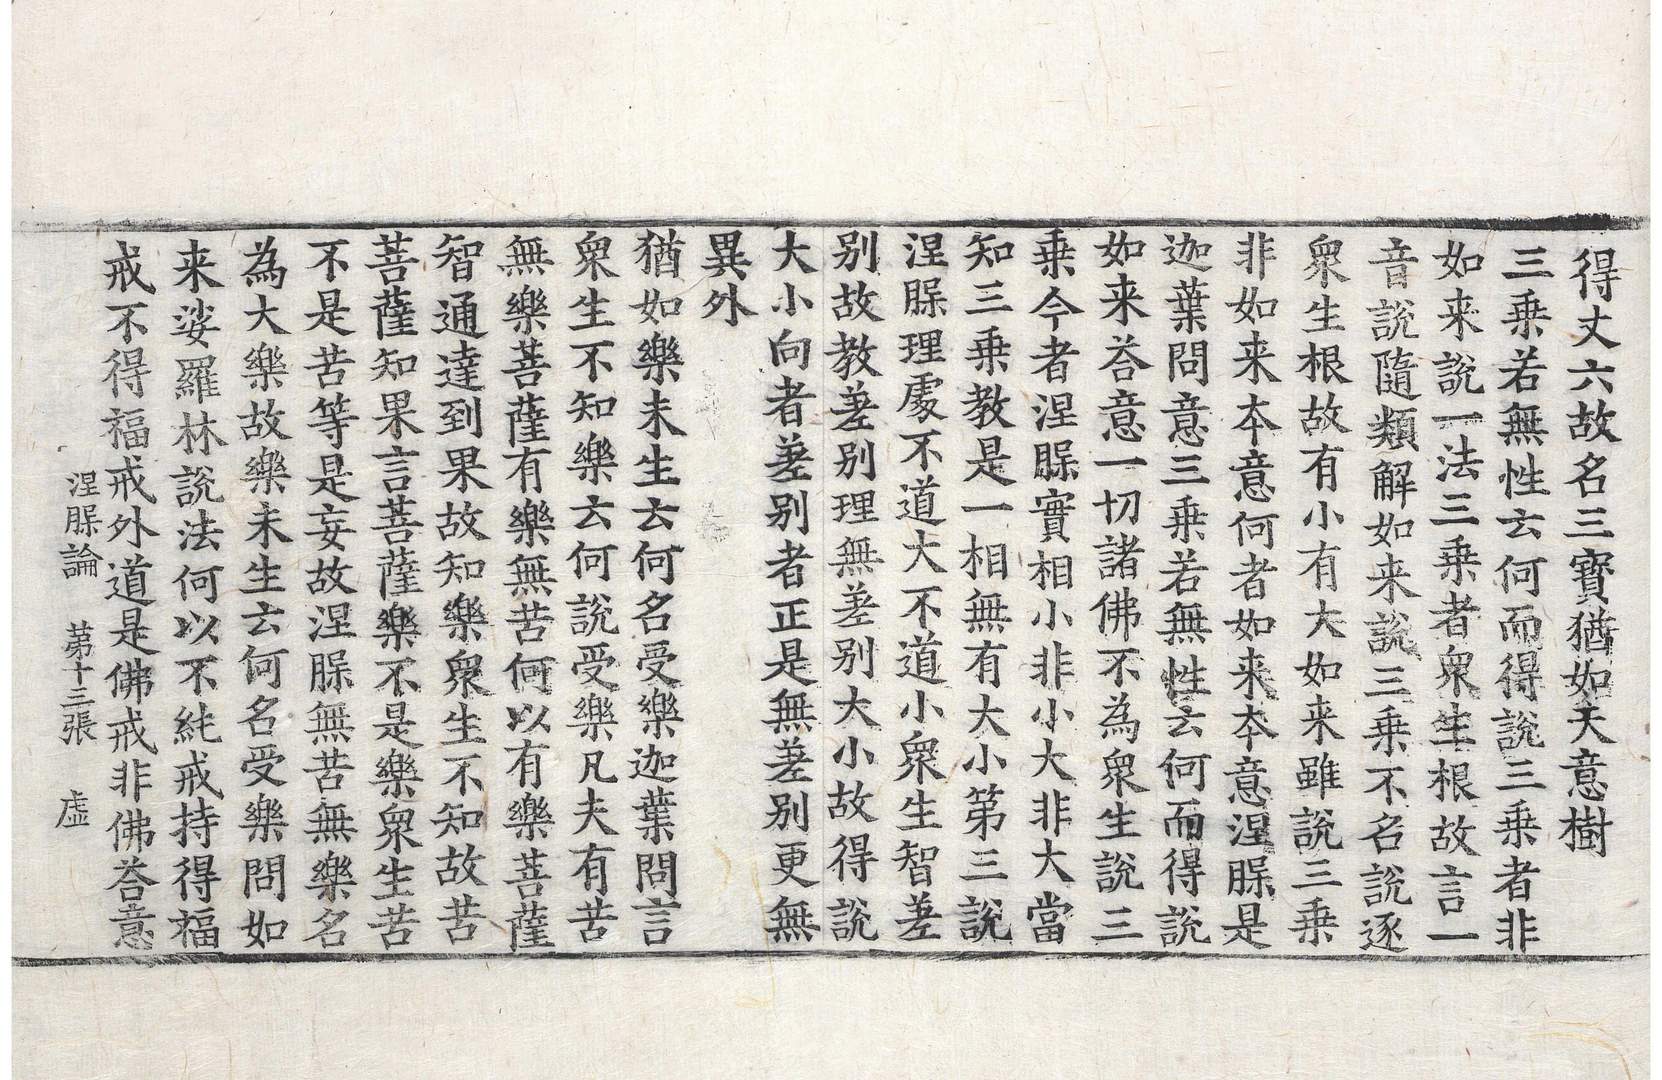 得丈六故名三寶猶如天意樹
三乗若無性云何而得説三乗者非
如来說一法三乗者衆生根故言一
音說隨類解如来說三乗不名說逐
衆生根故有小有大如来雖說三乗
非如来本意何者如来本意涅䏶是
迦葉問意三乗若無性云何而得說
如来荅意一切諸佛不為衆生說三
乗今者涅䏶實相小非小大非大當
知三乗教是一相無有大小第三說
涅䏶理處不道大不道小衆生智差
别故教差别理無差别大小故得說
大小向者差别者正是無差别更無
異外
猶如樂未生云何名受樂迦葉問言
衆生不知樂云何說受樂凡夫有苦
無樂菩薩有樂無苦何以有樂菩薩
智通達到果故知樂衆生不知故苦
菩薩知果言菩薩樂不是樂衆生苦
不是苦等是妄故涅䏶無苦無樂名
為大樂故樂未生云何名受樂問如
来娑羅林說法何以不純戒持得福
戒不得福戒外道是佛戒非佛荅意
涅䏶論 第十三張 虛